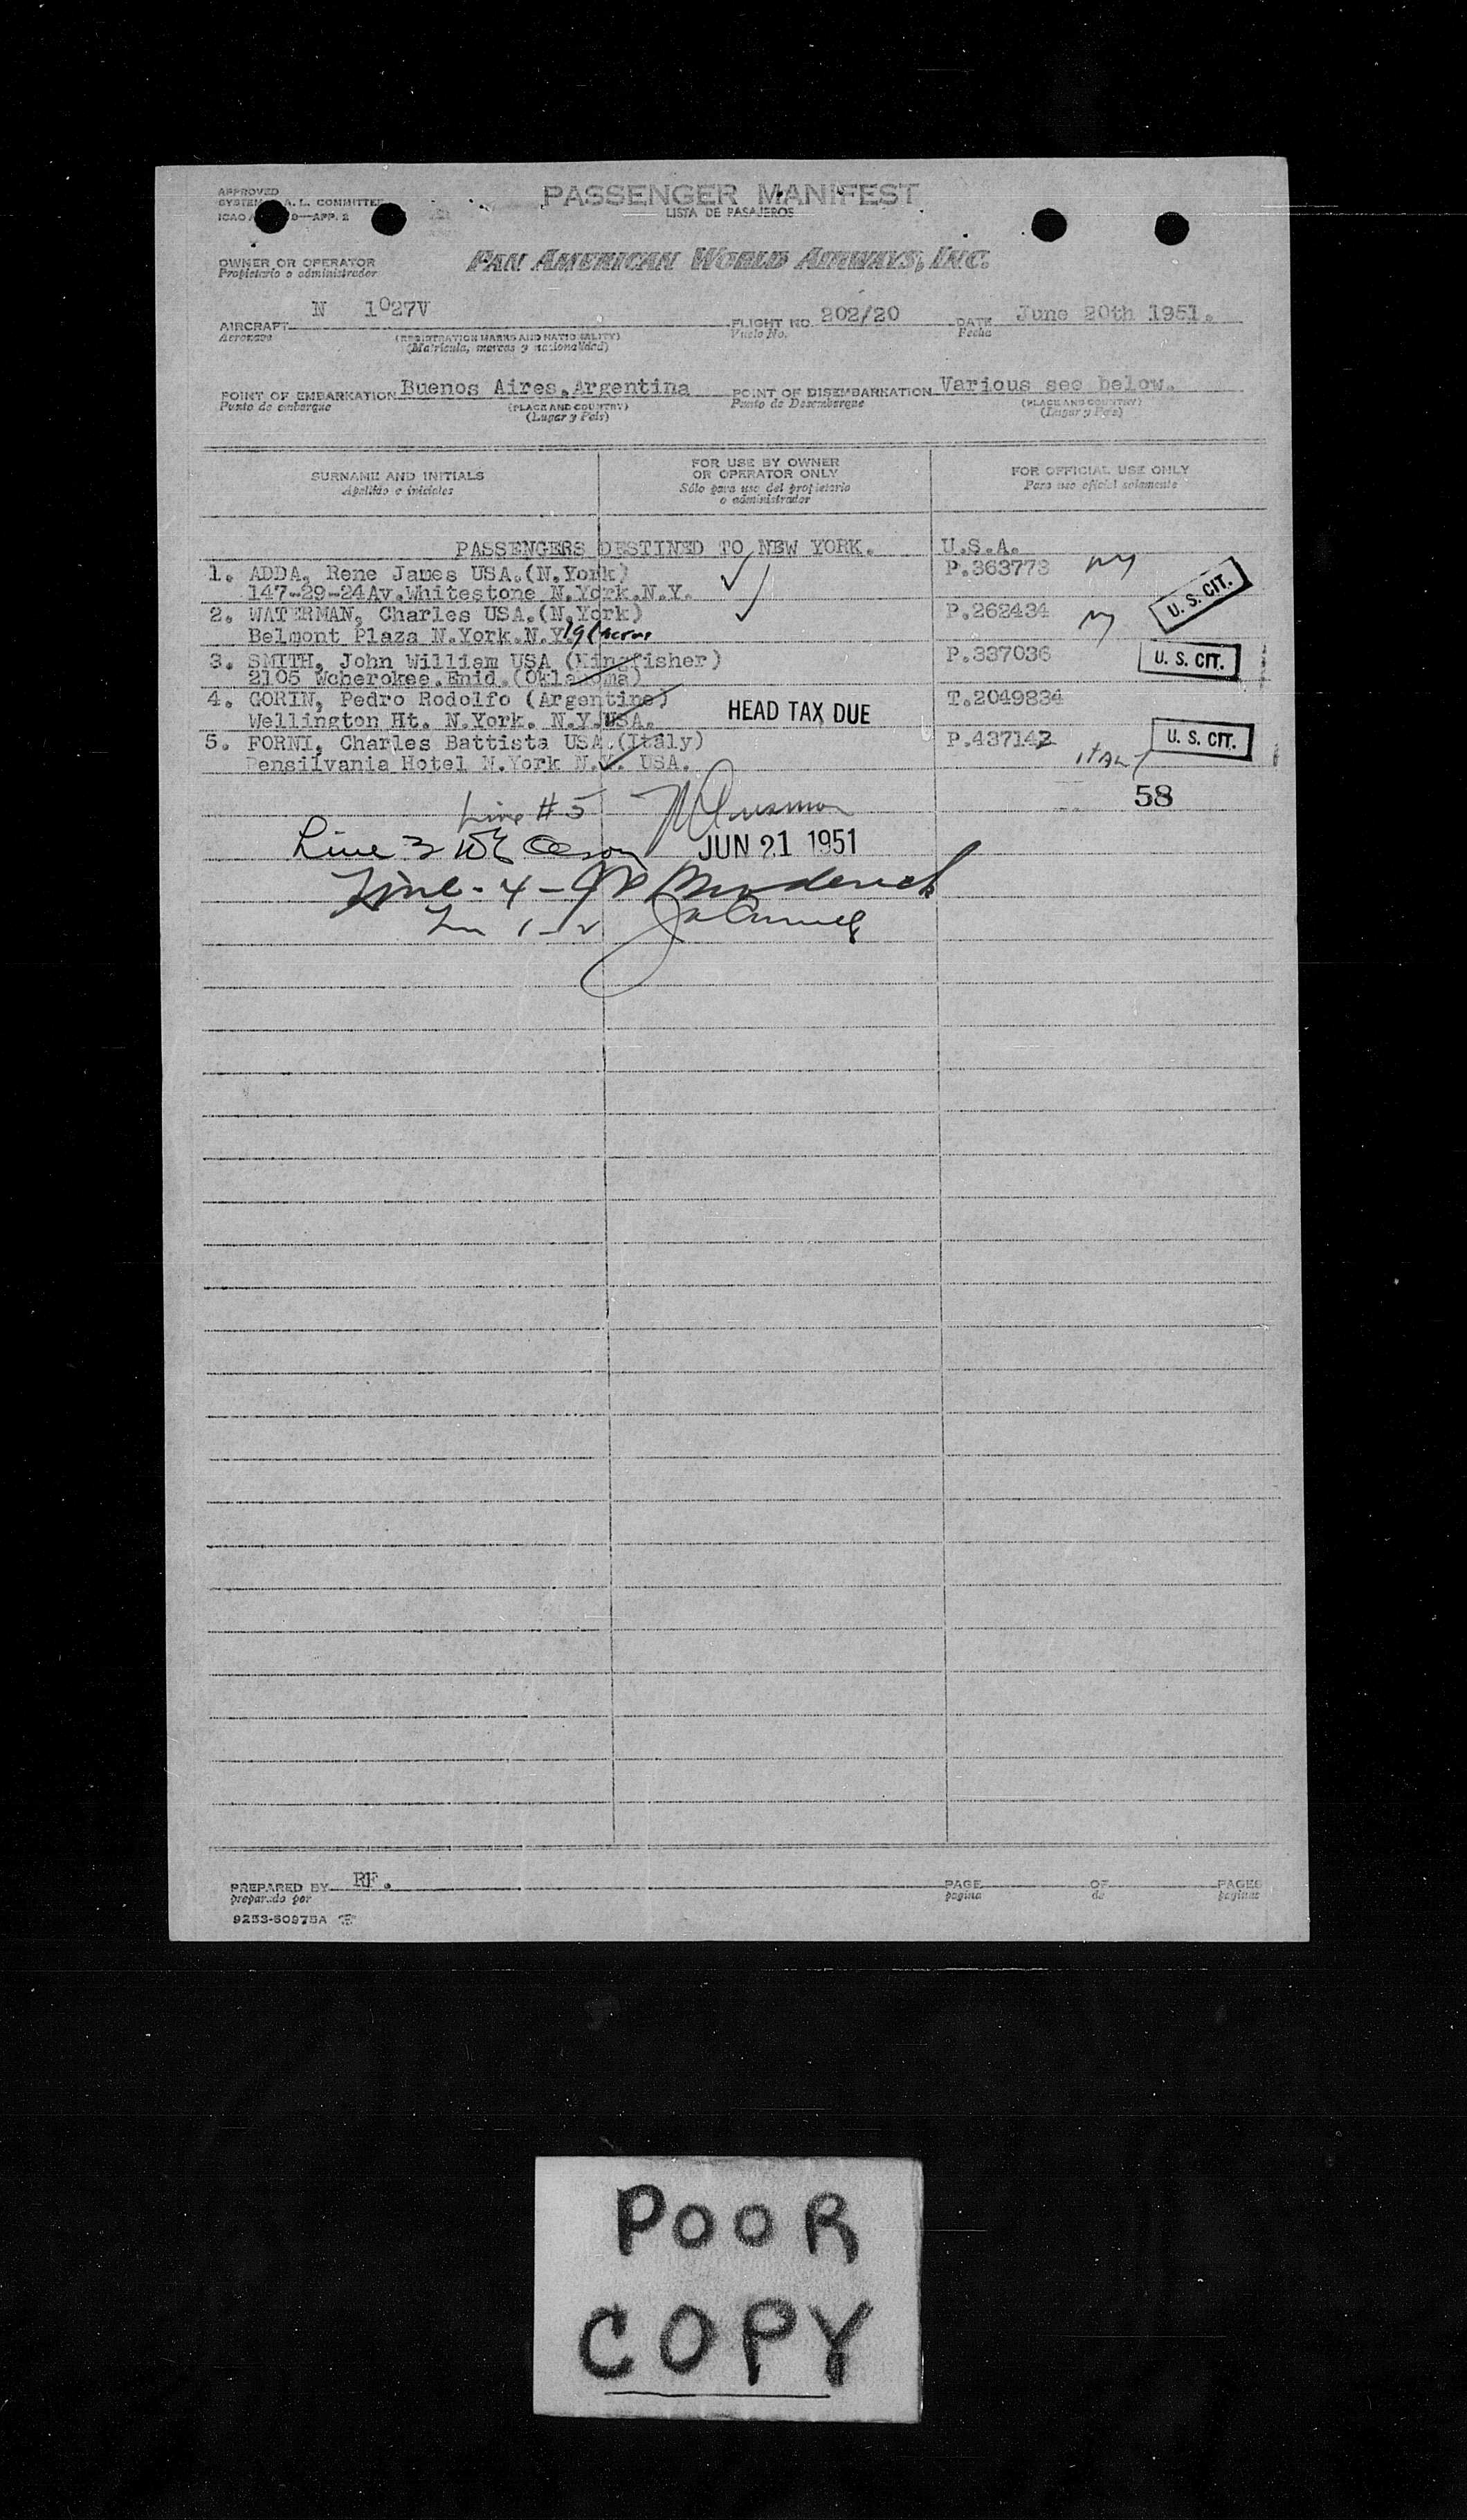 APPROVED
SYSTEM A. L. COMMITTEE
ICAO 9—APP. 2
PASSENGER MANIFEST
LISTA DE PASAJEROS
OWNER OR OPERATOR
Propietario o administrador
PAN AMERICAN WORLD AIRWAYS, INC.
AIRCRAFT N 1027V FLIGHT NO. 202/20 DATE June 20th 1951.
Aeronave (REGISTRATION MARKS AND NATIONALITY) Vuelo No. Fecha
(Matricula, marcas y nacionalidad)
POINT OF EMBARKATION Buenos Aires,Argentina POINT OF DISEMBARKATION Various see below.
Punto de embarque (PLACE AND COUNTRY) Punto de Desembarque (PLACE AND COUNTRY)
(Lugar y Pais) (Lugar y Pais)
SURNAME AND INITIALS FOR USE BY OWNER OR OPERATOR ONLY FOR OFFICIAL USE ONLY
Apellido e iniciales Sólo para uso del propietario o administrador Para uso oficial solamente
PASSENGERS DESTINED TO NEW YORK. U.S.A.
1. ADDA, Rene James USA.(N.York) P.363773 NY
147-29-24Av.Whitestone N.York.N.Y. U. S. CIT.
2. WATERMAN, Charles USA.(N.York) P.262434 NY
Belmont Plaza N.York.N.Y.
3. SMITH, John William USA (Kingfisher) P.337036 U. S. CIT.
2105 Wcherokee.Enid.(Oklahoma)
4. GORIN, Pedro Rodolfo (Argentine) T.2049834
Wellington Ht. N.York. N.Y.USA. HEAD TAX DUE
5. FORNI, Charles Battista USA.(Italy) P.437142 U. S. CIT.
Pensilvania Hotel N.York N.Y. USA. ITALY
58
Line #5
Line 3
JUN 21 1951
Line - 4 -
1-2
PREPARED BY RF. PAGE OF PAGES
preparado por pagina de paginas
9253-60975A
POOR
COPY